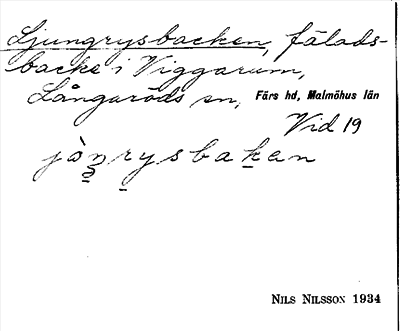 Ljungrysbacken, fälads-
backe i Viggarum,
Långaröds sn, Färs hd, Malmöhus län
Vid 19
jòn̥rysbaken
NILS NILSSON 1934